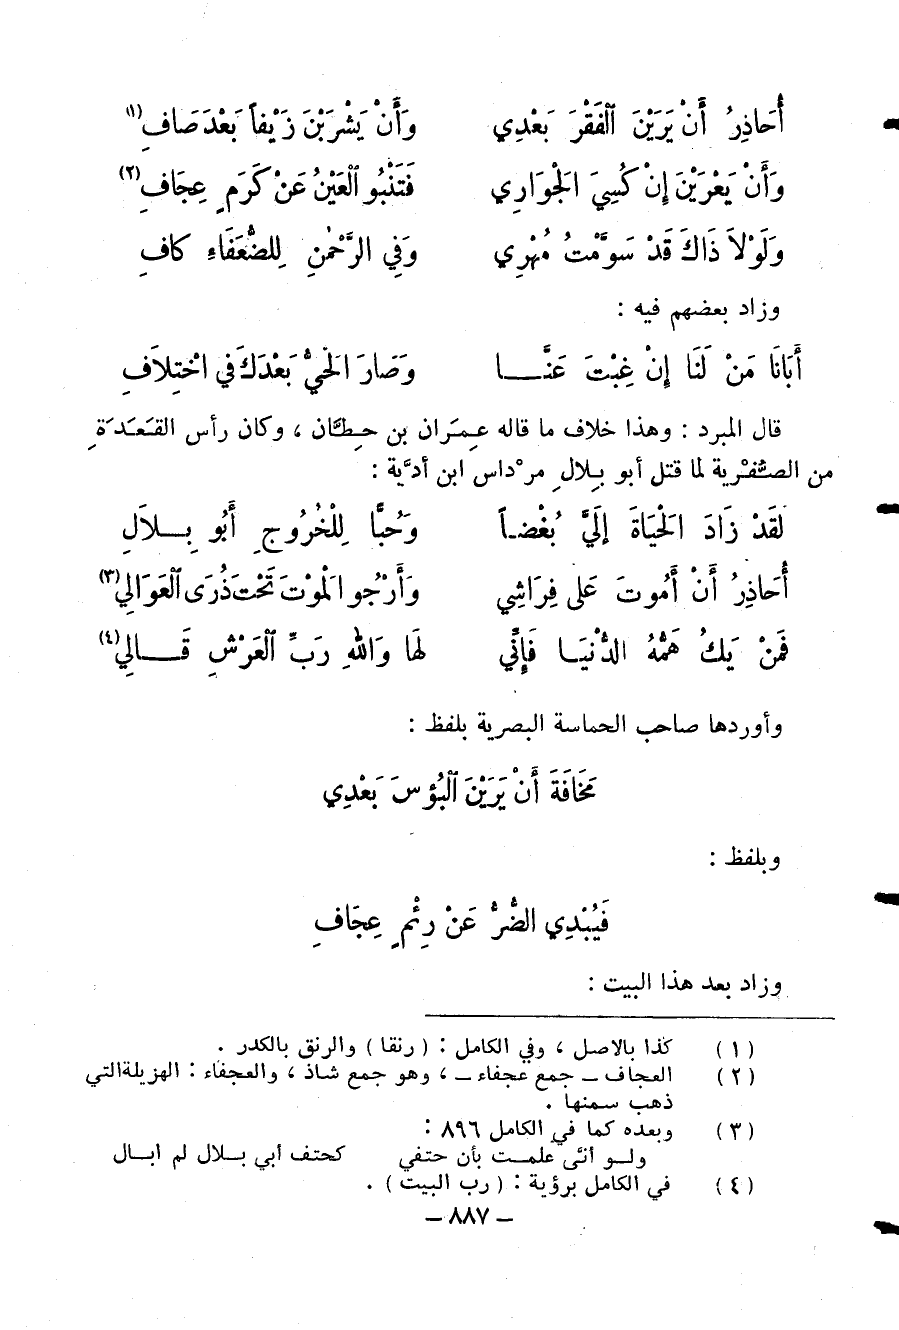 أُحَاذِرُ أَنْ يَرَيْنَ ٱلْفَقْرَ بَعْدِي وَأَنْ يَشْرَبْنَ زَيْفاً بَعْدَ صَافِ (١)
وَأَنْ يَعْرَيْنَ إِنْ كُسِيَ الْجَوَارِي فَتَنْبُو ٱلْعَيْنُ عَنْ كَرَمٍ عِجَافِ (٢)
وَلَوْلاَ ذَاكَ قَدْ سَوَّمْتُ مُهْرِي وَفِي الرَّحْمٰنِ لِلضُّعَفَاءِ كَافِ
وزاد بعضهم فيه :
أَبَانَا مَنْ لَنَا إِنْ غِبْتَ عَنَّــا وَصَارَ الْحَيُّ بَعْدَكَ فِي اخْتِلاَفِ
قال المبرد : وهذا خلاف ما قاله عِمَران بن حِطَّان ، وكان رأس القَعَدَةِ
من الصُّفْرِية لما قتل أبو بِلالٍ مرْداس ابن أدَيَّة :
لَقَدْ زَادَ الْحَيَاةَ إِلَيَّ بُغْضاً وَحُبًّا لِلْخُرُوجِ أَبُو بِــلاَلِ
أُحَاذِرُ أَنْ أَمُوتَ عَلَى فِرَاشِي وَأَرْجُو الْمَوْتَ تَحْتَ ذُرَى ٱلْعَوَالِي (٣)
فَمَنْ يَكُ هَمُّهُ الدُّنْيَـا فَإِنِّي لَهَا وَاللهِ رَبِّ ٱلْعَرْشِ قَــالِي (٤)
وأوردها صاحب الحماسة البصرية بلفظ :
مَخَافَةَ أَنْ يَرَيْنَ ٱلْبُؤسَ بَعْدِي
وبلفظ :
فَيُبْدِي الضُّرُّ عَنْ رِئْمٍ عِجَافِ
وزاد بعد هذا البيت :
(١) كذا بالاصل ، وفي الكامل : ( رنقا ) والرنق بالكدر .
(٢) العجاف ــ جمع عجفاء ــ ، وهو جمع شاذ ، والعجفاء : الهزيلة التي
ذهب سمنها .
(٣) وبعده كما في الكامل ٨٩٦ :
ولــو أنى علمــت بأن حتفي كحتف أبي بــلال لم ابــال
(٤) في الكامل برؤية : ( رب البيت ) .
– ٨٨٧ –